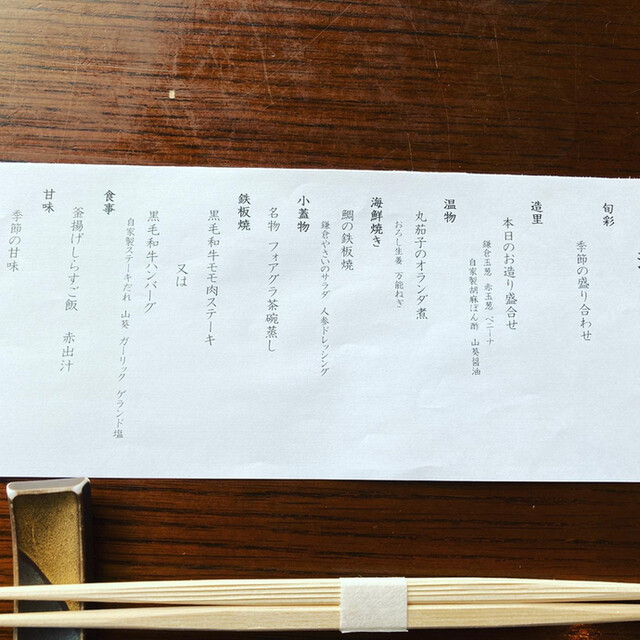 旬彩
季節の盛り合わせ
造里
本日のお造り盛合せ
鎌倉玉葱 赤玉葱 ベニータ
自家製胡麻ぽん酢 山葵醤油
温物
丸茄子のオランダ煮
おろし生姜 万能ねぎ
海鮮焼き
鯛の鉄板焼
鎌倉やさいのサラダ 人参ドレッシング
小蓋物
名物 フォアグラ茶碗蒸し
鉄板焼
黒毛和牛モモ肉ステーキ
又は
黒毛和牛ハンバーグ
自家製ステーキだれ 山葵 ガーリック ゲランド塩
食事
釜揚げしらすご飯 赤出汁
甘味
季節の甘味